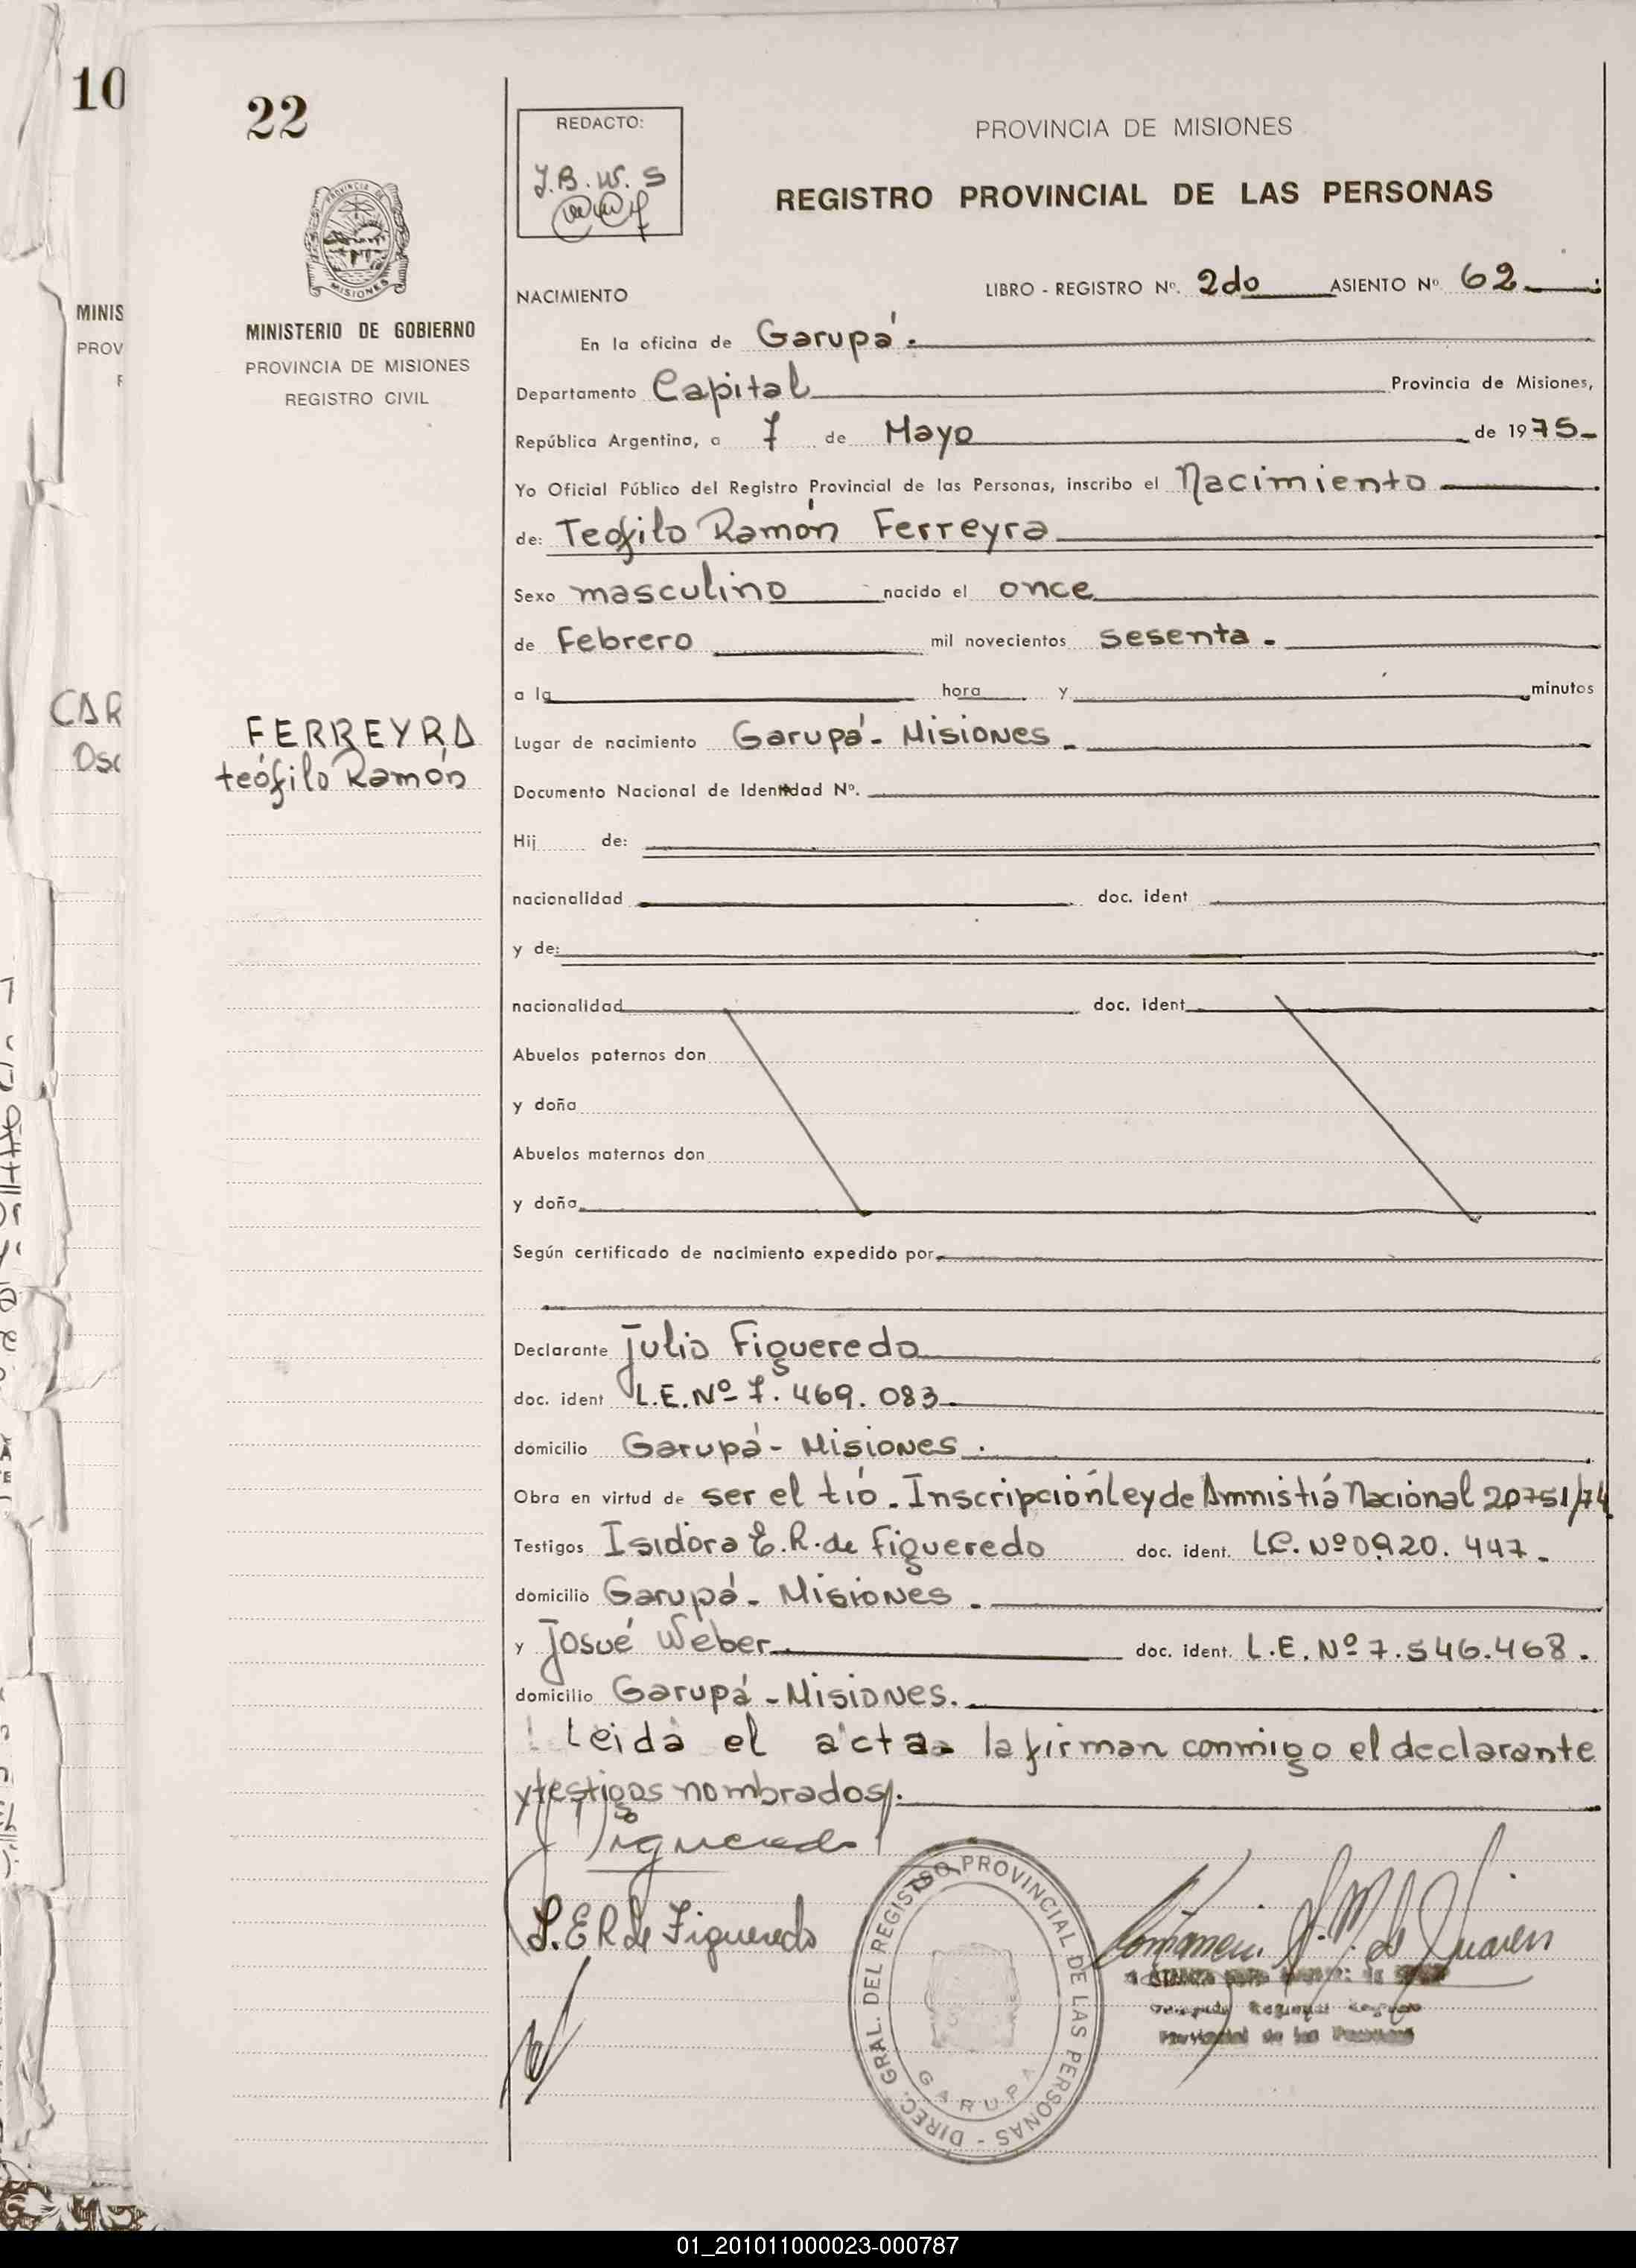 10
22
REDACTO:
J.B.W.S
PROVINCIA DE MISIONES
REGISTRO PROVINCIAL DE LAS PERSONAS
PROVINCIA DE
MISIONES
NACIMIENTO
LIBRO - REGISTRO Nº. 2do ASIENTO Nº 62
MINIS
PROV
MINISTERIO DE GOBIERNO
PROVINCIA DE MISIONES
REGISTRO CIVIL
En la oficina de Garupá.
Departamento Capital Provincia de Misiones,
República Argentina, a 7 de Mayo de 1975
Yo Oficial Público del Registro Provincial de las Personas, inscribo el Nacimiento
de: Teofilo Ramón Ferreyra
Sexo masculino nacido el once
de Febrero mil novecientos sesenta.
a la hora y minutos
CAR
Osc
FERREYRA
teófilo Ramón
Lugar de nacimiento Garupá - Misiones
Documento Nacional de Identidad Nº.
Hij de:
nacionalidad doc. ident
y de:
nacionalidad doc. ident
Abuelos paternos don
y doña
Abuelos maternos don
y doña
Según certificado de nacimiento expedido por
Declarante Julio Figueredo
doc. ident L.E.Nº 7.469.083
domicilio Garupá - Misiones.
Obra en virtud de ser el tío. Inscripción Ley de Amnistiá Nacional 20751/74
Testigos Isidora E.R. de Figueredo doc. ident. L.C. Nº 0.920.447.
domicilio Garupá - Misiones.
y Josué Weber doc. ident. L.E. Nº 7.546.468.
domicilio Garupá - Misiones.
Leida el acta la firman conmigo el declarante
y testigos nombrados.
J Figueredo
I.E R de Figueredo
DIREC. GRAL. DEL REGISTRO PROVINCIAL DE LAS PERSONAS -
GARUPA
Regional
Provincial de las Personas
01_201011000023-000787